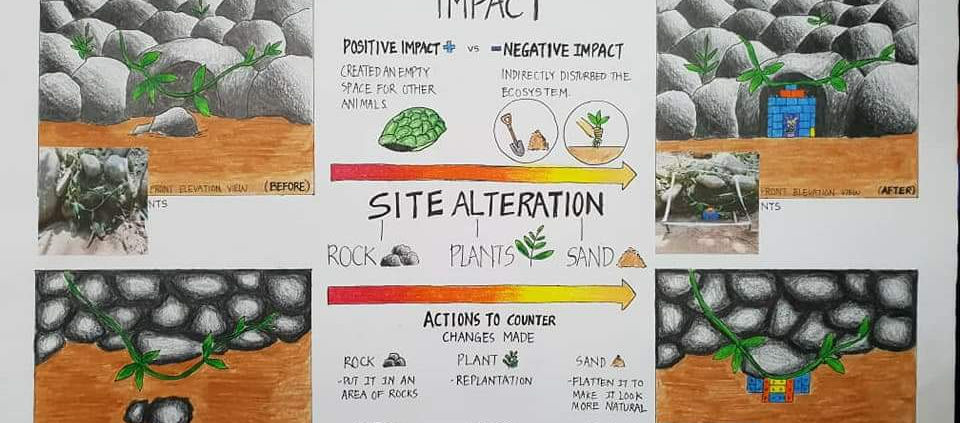 IMPACT
POSITIVE IMPACT + VS - NEGATIVE IMPACT
CREATED AN EMPTY
SPACE FOR OTHER
ANIMALS.
INDIRECTLY DISTURBED THE
ECOSYSTEM.
FRONT ELEVATION VIEW (BEFORE)
NTS
FRONT ELEVATION VIEW (AFTER)
NTS
SITE ALTERATION
ROCK PLANTS SAND
ACTIONS TO COUNTER
CHANGES MADE
ROCK
-PUT IT IN AN
AREA OF ROCKS
PLANT
-REPLANTATION
SAND
-FLATTEN IT TO
MAKE IT LOOK
MORE NATURAL